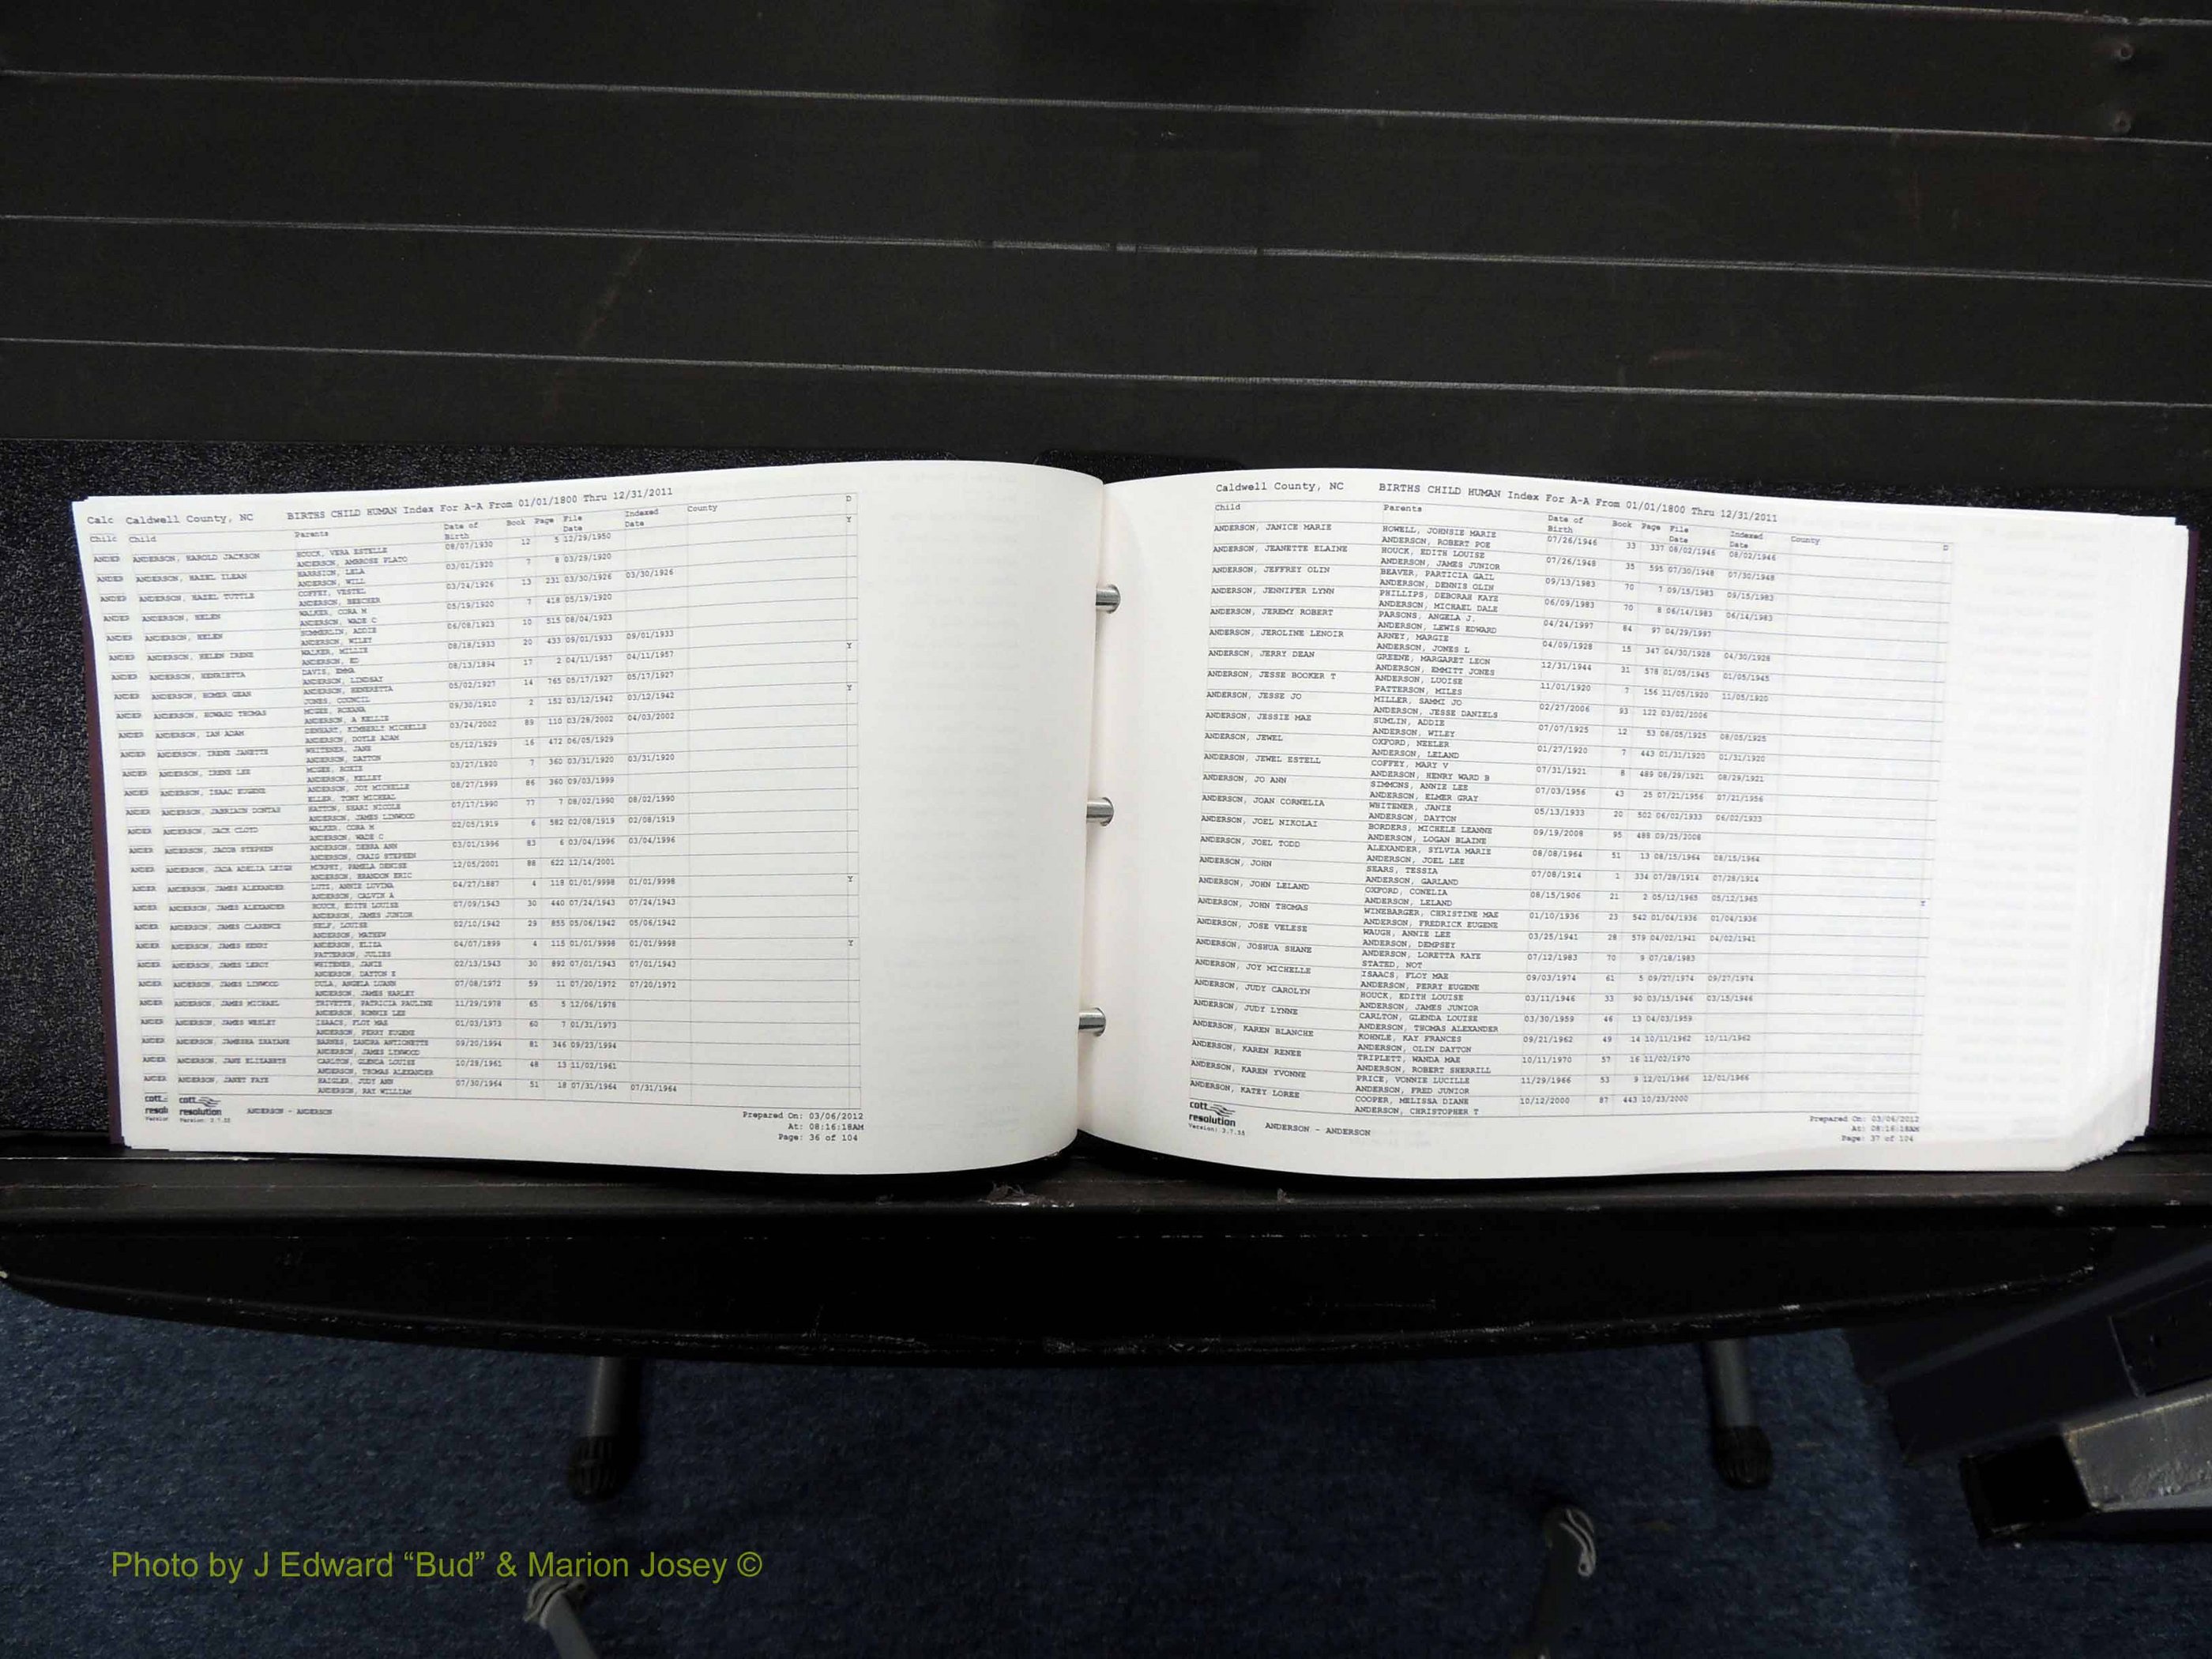 Calc Caldwell County, NC BIRTHS CHILD HUMAN Index For A-A From 01/01/1800 Thru 12/31/2011
Child Child Parents Date of Birth Book Page File Date Indexed Date County D
ANDER ANDERSON, HAROLD JACKSON HOUCK, VERA ESTELLE 08/07/1930 12 5 12/29/1950 Y
ANDERSON, AMBROSE PLATO
ANDER ANDERSON, HAZEL ILEAN HARRSION, LELA 03/01/1920 7 8 03/29/1920
ANDERSON, WILL
ANDER ANDERSON, HAZEL TUTTLE COFFEY, VESTEL 03/24/1926 13 231 03/30/1926 03/30/1926
ANDERSON, BEECHER
ANDER ANDERSON, HELEN WALKER, CORA M 05/19/1920 7 418 05/19/1920
ANDERSON, WADE C
ANDER ANDERSON, HELEN SUMMERLIN, ADDIE 06/08/1923 10 515 08/04/1923
ANDERSON, WILEY
ANDER ANDERSON, HELEN IRENE WALKER, MILLIE 08/18/1933 20 433 09/01/1933 09/01/1933
ANDERSON, ED
ANDER ANDERSON, HENRIETTA DAVIS, EMMA 08/13/1894 17 2 04/11/1957 04/11/1957 Y
ANDERSON, LINDSAY
ANDER ANDERSON, HOMER GEAN ANDERSON, HENERETTA 05/02/1927 14 765 05/17/1927 05/17/1927
JONES, COUNCIL
ANDER ANDERSON, HOWARD THOMAS MCGEE, ROXANA 09/30/1910 2 152 03/12/1942 03/12/1942 Y
ANDERSON, A KELLIE
ANDER ANDERSON, IAN ADAM DENHART, KIMBERLY MICHELLE 03/24/2002 89 110 03/28/2002 04/03/2002
ANDERSON, DOYLE ADAM
ANDER ANDERSON, IRENE JANETTE WHITENER, JANE 05/12/1929 16 472 06/05/1929
ANDERSON, DAYTON
ANDER ANDERSON, IRENE LEE MCGEE, ROXIE 03/27/1920 7 360 03/31/1920 03/31/1920
ANDERSON, KELLEY
ANDER ANDERSON, ISAAC EUGENE ANDERSON, JOY MICHELLE 08/27/1999 86 360 09/03/1999
ELLER, TONY MICHEAL
ANDER ANDERSON, JABRIAIN DONTAE HATTON, SHARI NICOLE 07/17/1990 77 7 08/02/1990 08/02/1990
ANDERSON, JAMES LINWOOD
ANDER ANDERSON, JACK CLOYD WALKER, CORA M 02/05/1919 6 582 02/08/1919 02/08/1919
ANDERSON, WADE C
ANDER ANDERSON, JACOB STEPHEN ANDERSON, DEBRA ANN 03/01/1996 83 6 03/04/1996 03/04/1996
ANDERSON, CRAIG STEPHEN
ANDER ANDERSON, JADA ADELIA LEIGH MURPHY, PAMELA DENISE 12/05/2001 88 622 12/14/2001
ANDERSON, BRANDON ERIC
ANDER ANDERSON, JAMES ALEXANDER LUTZ, ANNIE LUVINA 04/27/1887 4 118 01/01/9998 01/01/9998 Y
ANDERSON, CALVIN A
ANDER ANDERSON, JAMES ALEXANDER HOUCK, EDITH LOUISE 07/09/1943 30 440 07/24/1943 07/24/1943
ANDERSON, JAMES JUNIOR
ANDER ANDERSON, JAMES CLARENCE SELF, LOUISE 02/10/1942 29 855 05/06/1942 05/06/1942
ANDERSON, MATHEW
ANDER ANDERSON, JAMES HENRY ANDERSON, ELIZA 04/07/1899 4 115 01/01/9998 01/01/9998 Y
PATTERSON, JULIES
ANDER ANDERSON, JAMES LEROY WHITENER, JANIE 02/13/1943 30 892 07/01/1943 07/01/1943
ANDERSON, DAYTON E
ANDER ANDERSON, JAMES LINWOOD DULA, ANGELA LUANN 07/08/1972 59 11 07/20/1972 07/20/1972
ANDERSON, JAMES HARLEY
ANDER ANDERSON, JAMES MICHAEL TRIVETTE, PATRICIA PAULINE 11/29/1978 65 5 12/06/1978
ANDERSON, RONNIE LEE
ANDER ANDERSON, JAMES WESLEY ISAACS, FLOY MAE 01/03/1973 60 7 01/31/1973
ANDERSON, PERRY EUGENE
ANDER ANDERSON, JAMESHA SHAYANE BARNES, SANDRA ANTIONETTE 09/20/1994 81 346 09/23/1994
ANDERSON, JAMES LINWOOD
ANDER ANDERSON, JANE ELIZABETH CARLTON, GLENDA LOUISE 10/28/1961 48 13 11/02/1961
ANDERSON, THOMAS ALEXANDER
ANDER ANDERSON, JANET FAYE HAIGLER, JUDY ANN 07/30/1964 51 18 07/31/1964 07/31/1964
ANDERSON, RAY WILLIAM
cott cott
resol resolution ANDERSON - ANDERSON
Version Version: 3.7.55
Prepared On: 03/06/2012
At: 08:16:18AM
Page: 36 of 104
Caldwell County, NC BIRTHS CHILD HUMAN Index For A-A From 01/01/1800 Thru 12/31/2011
Child Parents Date of Birth Book Page File Date Indexed Date County D
ANDERSON, JANICE MARIE HOWELL, JOHNSIE MARIE 07/26/1946 33 337 08/02/1946 08/02/1946
ANDERSON, ROBERT POE
ANDERSON, JEANETTE ELAINE HOUCK, EDITH LOUISE 07/26/1948 35 595 07/30/1948 07/30/1948
ANDERSON, JAMES JUNIOR
ANDERSON, JEFFREY OLIN BEAVER, PARTICIA GAIL 09/13/1983 70 7 09/15/1983 09/15/1983
ANDERSON, DENNIS OLIN
ANDERSON, JENNIFER LYNN PHILLIPS, DEBORAH KAYE 06/09/1983 70 8 06/14/1983 06/14/1983
ANDERSON, MICHAEL DALE
ANDERSON, JEREMY ROBERT PARSONS, ANGELA J. 04/24/1997 84 97 04/29/1997
ANDERSON, LEWIS EDWARD
ANDERSON, JEROLINE LENOIR ARNEY, MARGIE 04/09/1928 15 347 04/30/1928 04/30/1928
ANDERSON, JONES L
ANDERSON, JERRY DEAN GREENE, MARGARET LEON 12/31/1944 31 578 01/05/1945 01/05/1945
ANDERSON, EMMITT JONES
ANDERSON, JESSE BOOKER T ANDERSON, LUOISE 11/01/1920 7 156 11/05/1920 11/05/1920
PATTERSON, MILES
ANDERSON, JESSE JO MILLER, SAMMI JO 02/27/2006 93 122 03/02/2006
ANDERSON, JESSE DANIELS
ANDERSON, JESSIE MAE SUMLIN, ADDIE 07/07/1925 12 53 08/05/1925 08/05/1925
ANDERSON, WILEY
ANDERSON, JEWEL OXFORD, NEELER 01/27/1920 7 443 01/31/1920 01/31/1920
ANDERSON, LELAND
ANDERSON, JEWEL ESTELL COFFEY, MARY V 07/31/1921 8 489 08/29/1921 08/29/1921
ANDERSON, HENRY WARD B
ANDERSON, JO ANN SIMMONS, ANNIE LEE 07/03/1956 43 25 07/21/1956 07/21/1956
ANDERSON, ELMER GRAY
ANDERSON, JOAN CORNELIA WHITENER, JANIE 05/13/1933 20 502 06/02/1933 06/02/1933
ANDERSON, DAYTON
ANDERSON, JOEL NIKOLAI BORDERS, MICHELE LEANNE 09/19/2008 95 488 09/25/2008
ANDERSON, LOGAN BLAINE
ANDERSON, JOEL TODD ALEXANDER, SYLVIA MARIE 08/08/1964 51 13 08/15/1964 08/15/1964
ANDERSON, JOEL LEE
ANDERSON, JOHN SEARS, TESSIA 07/08/1914 1 334 07/28/1914 07/28/1914
ANDERSON, GARLAND
ANDERSON, JOHN LELAND OXFORD, CONELIA 08/15/1906 21 2 05/12/1965 05/12/1965 Y
ANDERSON, LELAND
ANDERSON, JOHN THOMAS WINEBARGER, CHRISTINE MAE 01/10/1936 23 542 01/04/1936 01/04/1936
ANDERSON, FREDRICK EUGENE
ANDERSON, JOSE VELESE WAUGH, ANNIE LEE 03/25/1941 28 579 04/02/1941 04/02/1941
ANDERSON, DEMPSEY
ANDERSON, JOSHUA SHANE ANDERSON, LORETTA KAYE 07/12/1983 70 9 07/18/1983
STATED, NOT
ANDERSON, JOY MICHELLE ISAACS, FLOY MAE 09/03/1974 61 5 09/27/1974 09/27/1974
ANDERSON, PERRY EUGENE
ANDERSON, JUDY CAROLYN HOUCK, EDITH LOUISE 03/11/1946 33 90 03/15/1946 03/15/1946
ANDERSON, JAMES JUNIOR
ANDERSON, JUDY LYNNE CARLTON, GLENDA LOUISE 03/30/1959 46 13 04/03/1959
ANDERSON, THOMAS ALEXANDER
ANDERSON, KAREN BLANCHE KOHNLE, KAY FRANCES 09/21/1962 49 14 10/11/1962 10/11/1962
ANDERSON, OLIN DAYTON
ANDERSON, KAREN RENEE TRIPLETT, WANDA MAE 10/11/1970 57 16 11/02/1970
ANDERSON, ROBERT SHERRILL
ANDERSON, KAREN YVONNE PRICE, VONNIE LUCILLE 11/29/1966 53 9 12/01/1966 12/01/1966
ANDERSON, FRED JUNIOR
ANDERSON, KATEY LOREE COOPER, MELISSA DIANE 10/12/2000 87 443 10/23/2000
ANDERSON, CHRISTOPHER T
cott
resolution ANDERSON - ANDERSON
Version: 3.7.55
Prepared On: 03/06/2012
At: 08:16:18AM
Page: 37 of 104
Photo by J Edward “Bud” & Marion Josey ©